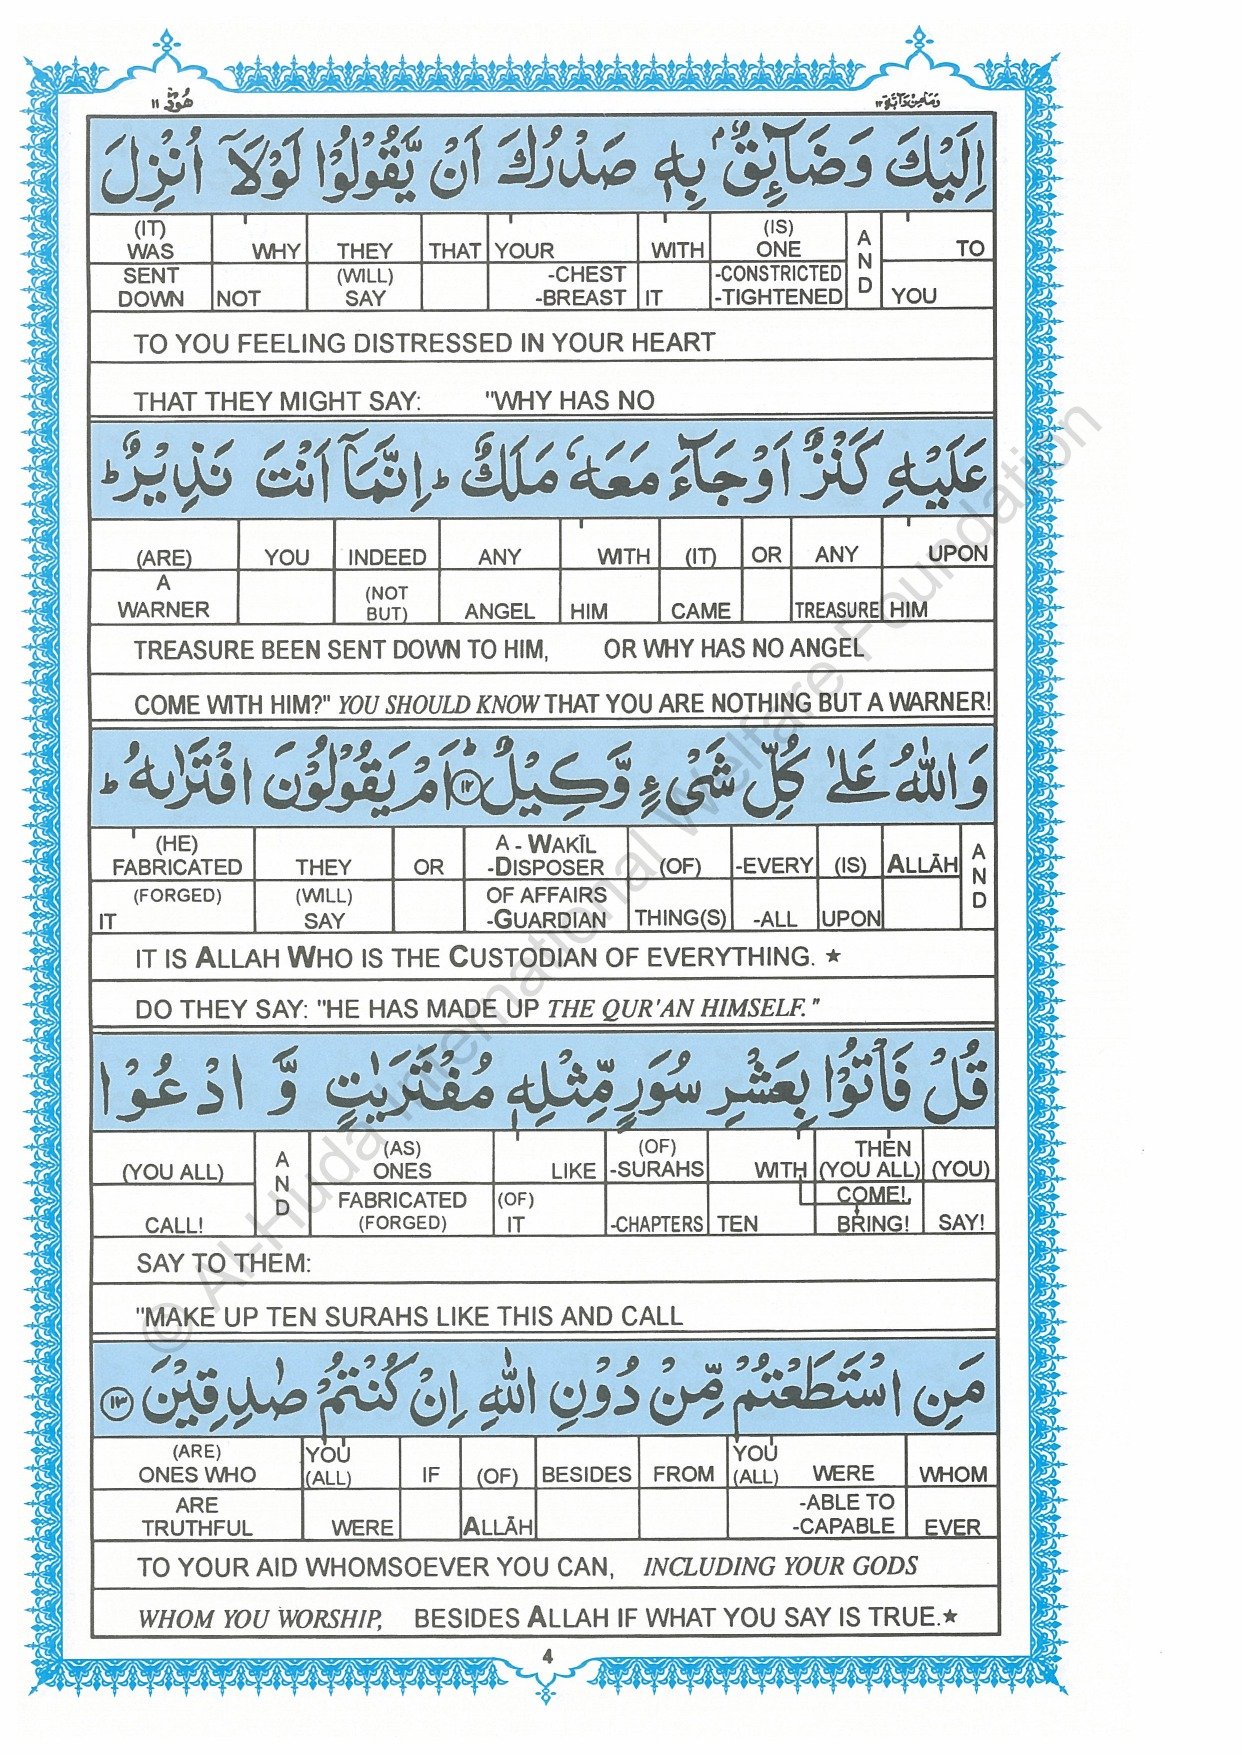 وما من دابة ١٢
هود ١١
اِلَيْكَ وَضَآئِقٌۢ بِهٖ صَدْرُكَ اَنْ يَّقُوْلُوْا لَوْلَاۤ اُنْزِلَ
(IT) WAS WHY THEY THAT YOUR WITH (IS) ONE AND TO
SENT DOWN NOT (WILL) SAY -CHEST -BREAST IT -CONSTRICTED -TIGHTENED YOU
TO YOU FEELING DISTRESSED IN YOUR HEART
THAT THEY MIGHT SAY: "WHY HAS NO
عَلَيْهِ كَنْزٌ اَوْ جَآءَ مَعَهٗ مَلَكٌ ؕ اِنَّمَاۤ اَنْتَ نَذِيْرٌ ؕ
(ARE) YOU INDEED ANY WITH (IT) OR ANY UPON
A WARNER (NOT BUT) ANGEL HIM CAME TREASURE HIM
TREASURE BEEN SENT DOWN TO HIM, OR WHY HAS NO ANGEL
COME WITH HIM?" YOU SHOULD KNOW THAT YOU ARE NOTHING BUT A WARNER!
وَاللّٰهُ عَلٰى كُلِّ شَيْءٍ وَّكِيْلٌ ؕ ﴿۱۲﴾ اَمْ يَقُوْلُوْنَ افْتَرٰىهُ ؕ
(HE) FABRICATED THEY OR A - WAKĪL -DISPOSER (OF) -EVERY (IS) ALLĀH AND
(FORGED) IT (WILL) SAY OF AFFAIRS -GUARDIAN THING(S) -ALL UPON
IT IS ALLAH WHO IS THE CUSTODIAN OF EVERYTHING. ★
DO THEY SAY: "HE HAS MADE UP THE QUR'AN HIMSELF."
قُلْ فَاْتُوْا بِعَشْرِ سُوَرٍ مِّثْلِهٖ مُفْتَرَيٰتٍ وَّ ادْعُوْا
(YOU ALL) AND (AS) ONES LIKE (OF) -SURAHS WITH THEN (YOU ALL) (YOU)
CALL! FABRICATED (FORGED) (OF) IT -CHAPTERS TEN COME! BRING! SAY!
SAY TO THEM:
"MAKE UP TEN SURAHS LIKE THIS AND CALL
مَنِ اسْتَطَعْتُمْ مِّنْ دُوْنِ اللّٰهِ اِنْ كُنْتُمْ صٰدِقِيْنَ ﴿۱۳﴾
(ARE) ONES WHO YOU (ALL) IF (OF) BESIDES FROM YOU (ALL) WERE WHOM
ARE TRUTHFUL WERE ALLĀH -ABLE TO -CAPABLE EVER
TO YOUR AID WHOMSOEVER YOU CAN, INCLUDING YOUR GODS
WHOM YOU WORSHIP, BESIDES ALLAH IF WHAT YOU SAY IS TRUE.★
4
© Al-Huda International Welfare Foundation